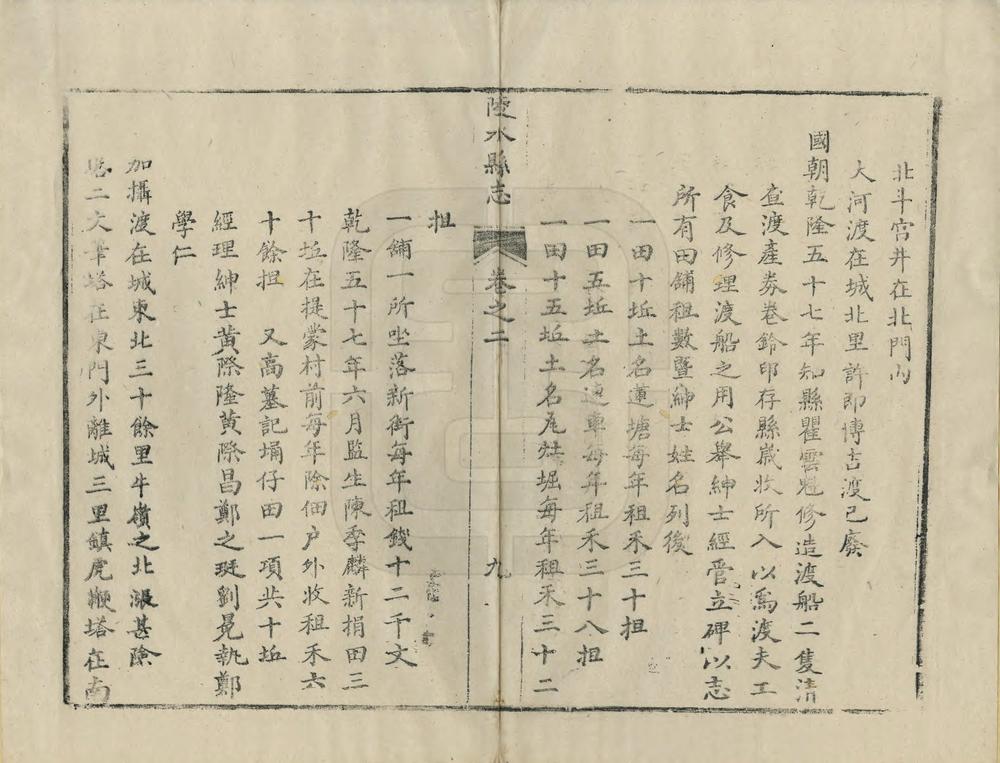 北斗宮井在北門內
大河渡在城北里許即博吉渡已廢
國朝乾隆五十七年知縣瞿雲魁修造渡船二隻清
查渡產券卷鈐印存縣歲收所入以為渡夫工
食及修理渡船之用公舉紳士經管立碑以志
所有田舖租數暨紳士姓名列後
一田十坵土名蓮塘每年租禾三十担
一田五坵土名連車每年租禾三十八担
一田十五坵土名尾灶堀每年租禾三十二
陵水縣志
卷之二
九
担
一舖一所坐落新街每年租錢十二千文
乾隆五十七年六月監生陳季麟新捐田三
十坵在提蒙村前每年除佃户外收租禾六
十餘担 又高墓記埇仔田一項共十坵
經理紳士黃際隆黃際昌鄭之珽劉冕執鄭
學仁
加攝渡在城東北三十餘里牛嶺之北漲甚險
二文筆塔在東門外離城三里鎮虎鞭塔在南